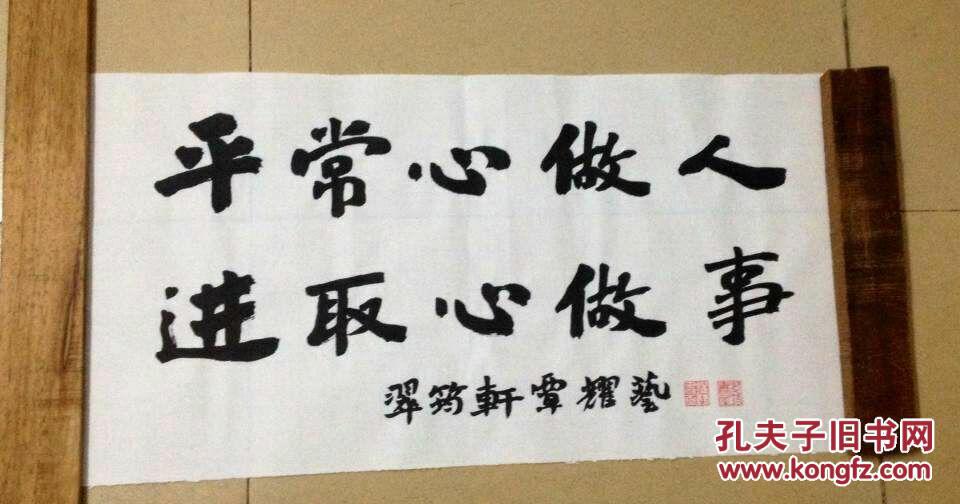 平常心做人
进取心做事
翠筠軒覃耀藝
孔夫子旧书网
www.kongfz.com